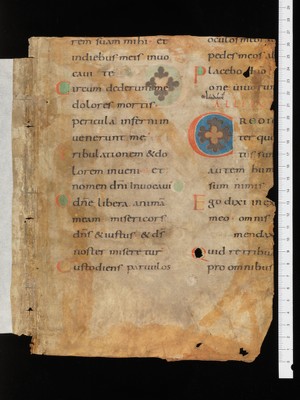 rem suam mihi · et
indiebus meis invo
cavi te
Circum dederunt me
dolores mortis
pericula inferni in
venerunt me
tribulationem & do
lorem inveni · et
nomen dñi invocavi
dñe libera animã
meam · misericors
dñs & iustus & ds
noster misere tur
Custodiens parvulos
oculos meos a
pedes meos a
Placebo
one vivorum
CREDI
ter qu
tus su
autem hum
sum nimis
Ego dixi in ex
meo · omnis
menda
Quid retribu
pro omnibus